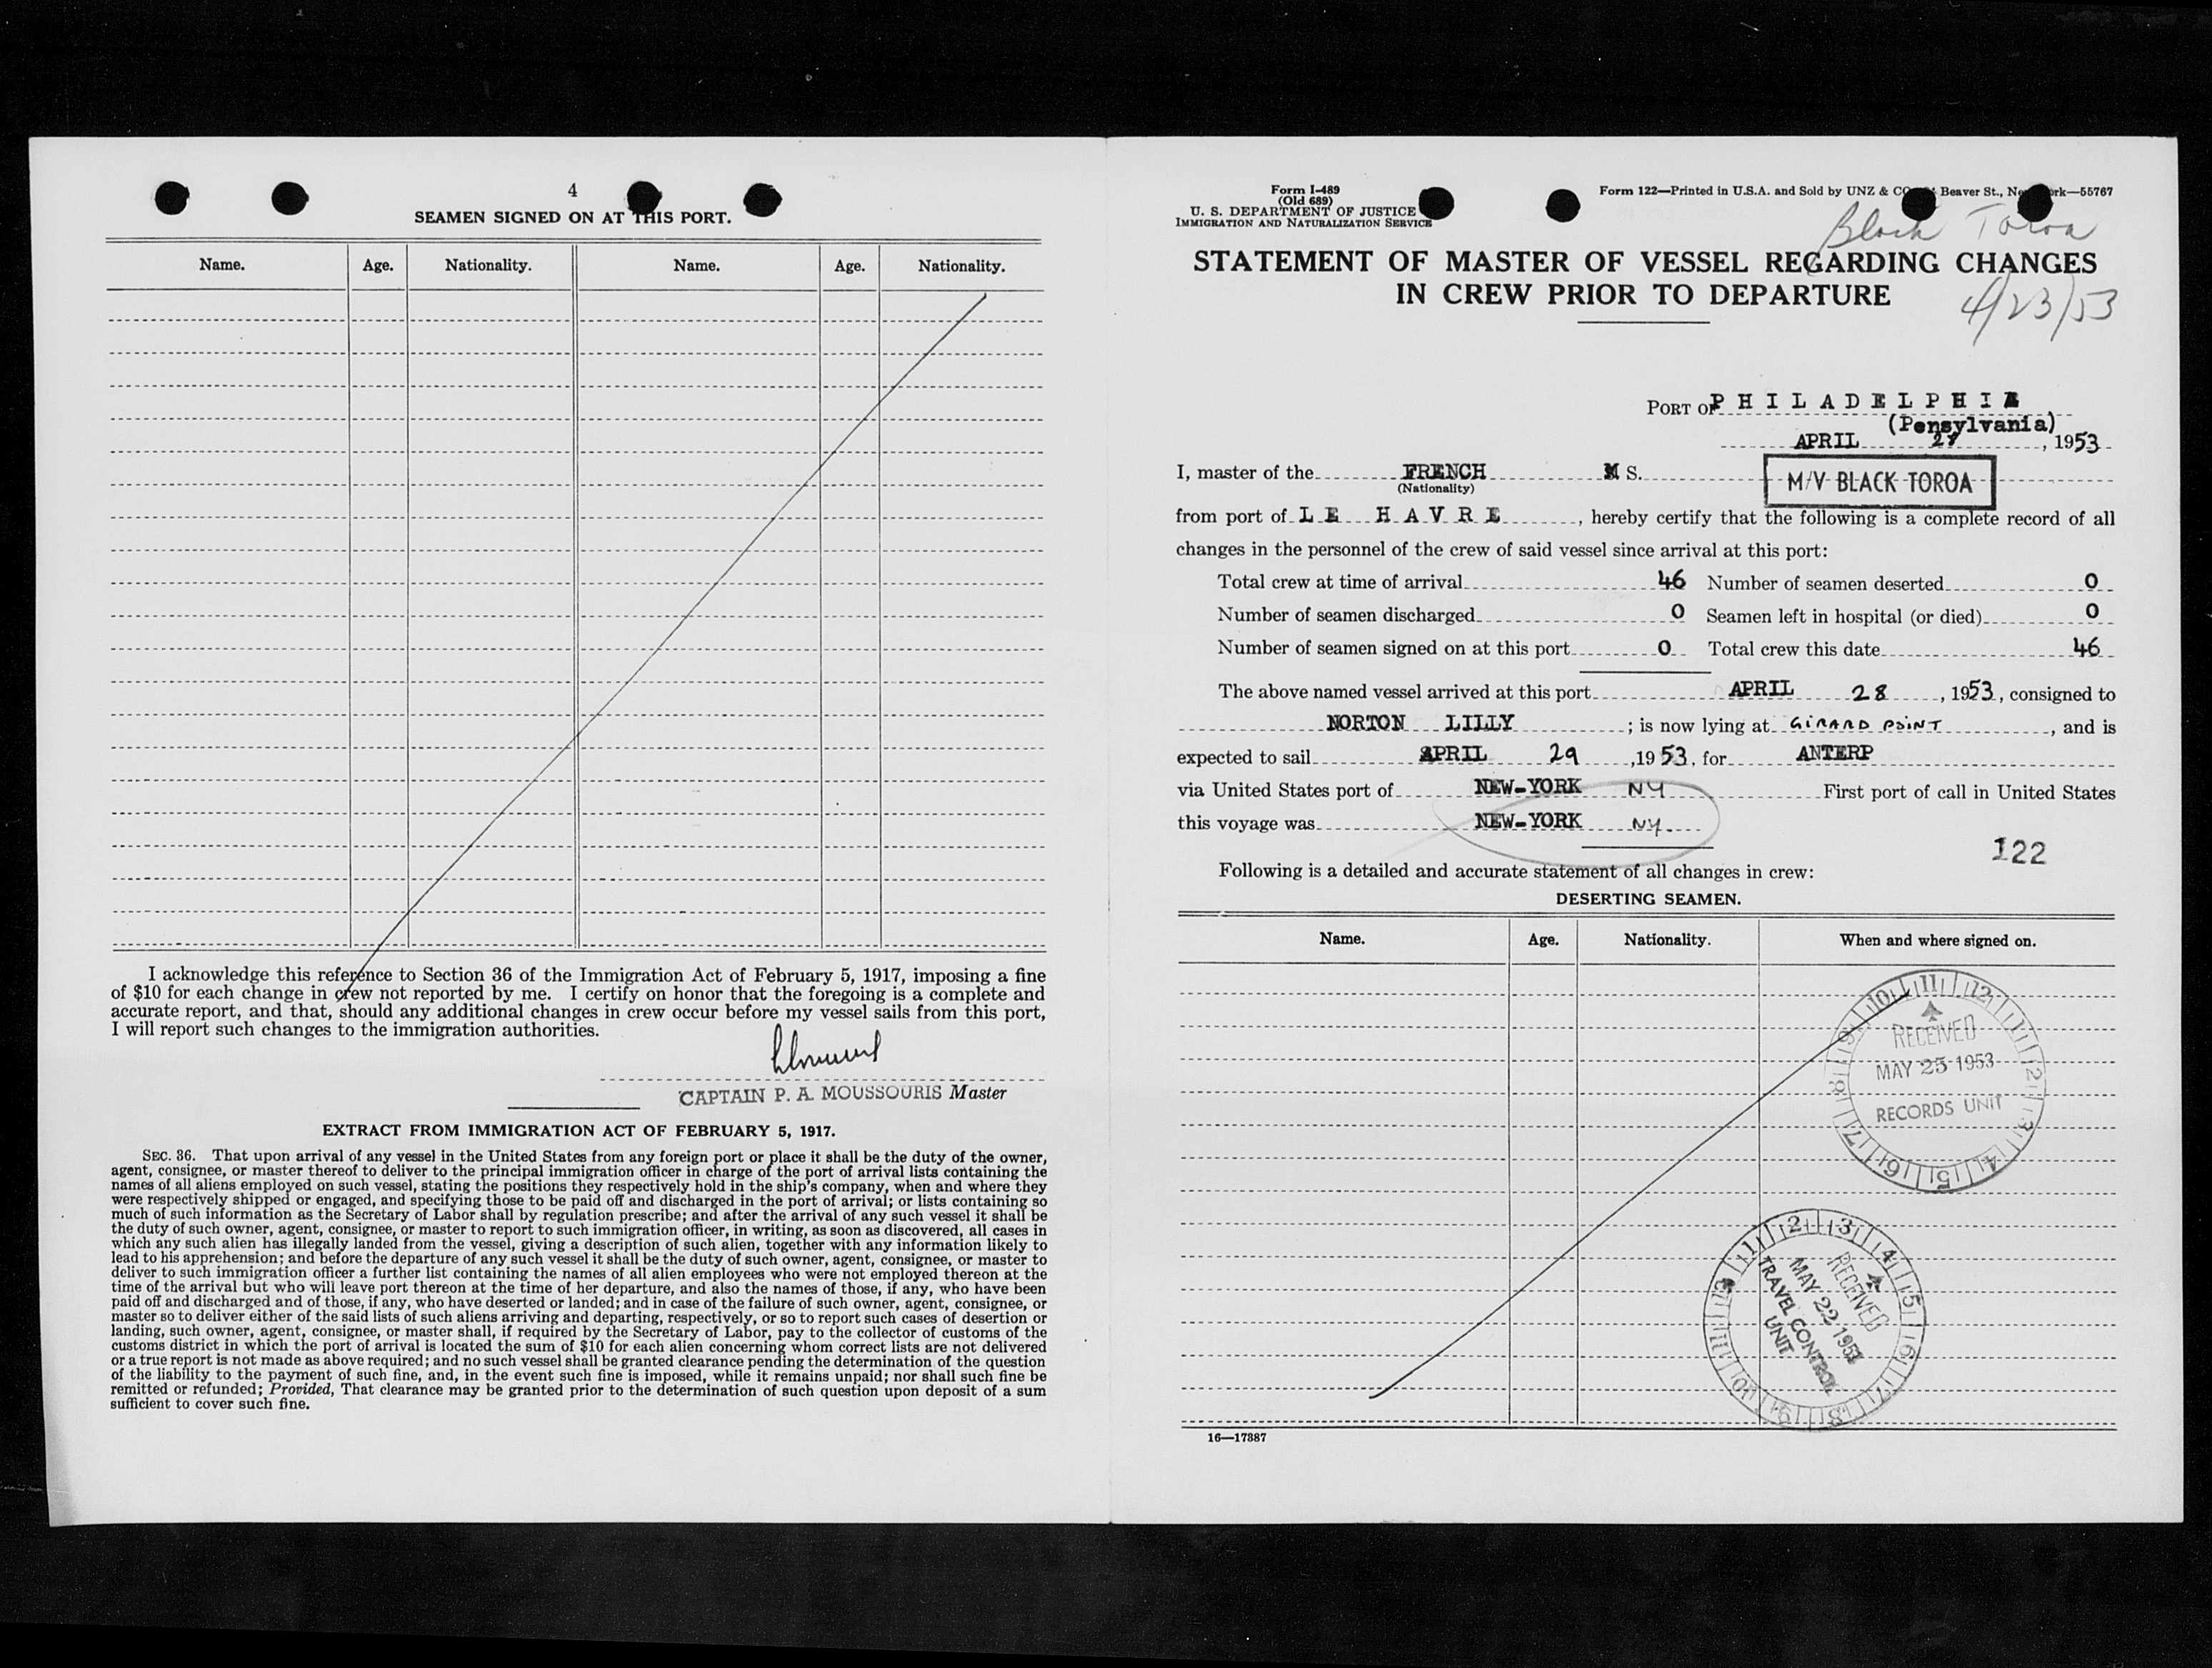 4
SEAMEN SIGNED ON AT THIS PORT.
Name. Age. Nationality. Name. Age. Nationality.
I acknowledge this reference to Section 36 of the Immigration Act of February 5, 1917, imposing a fine
of $10 for each change in crew not reported by me. I certify on honor that the foregoing is a complete and
accurate report, and that, should any additional changes in crew occur before my vessel sails from this port,
I will report such changes to the immigration authorities.
CAPTAIN P. A. MOUSSOURIS Master
EXTRACT FROM IMMIGRATION ACT OF FEBRUARY 5, 1917.
SEC. 36. That upon arrival of any vessel in the United States from any foreign port or place it shall be the duty of the owner,
agent, consignee, or master thereof to deliver to the principal immigration officer in charge of the port of arrival lists containing the
names of all aliens employed on such vessel, stating the positions they respectively hold in the ship's company, when and where they
were respectively shipped or engaged, and specifying those to be paid off and discharged in the port of arrival; or lists containing so
much of such information as the Secretary of Labor shall by regulation prescribe; and after the arrival of any such vessel it shall be
the duty of such owner, agent, consignee, or master to report to such immigration officer, in writing, as soon as discovered, all cases in
which any such alien has illegally landed from the vessel, giving a description of such alien, together with any information likely to
lead to his apprehension; and before the departure of any such vessel it shall be the duty of such owner, agent, consignee, or master to
deliver to such immigration officer a further list containing the names of all alien employees who were not employed thereon at the
time of the arrival but who will leave port thereon at the time of her departure, and also the names of those, if any, who have been
paid off and discharged and of those, if any, who have deserted or landed; and in case of the failure of such owner, agent, consignee, or
master so to deliver either of the said lists of such aliens arriving and departing, respectively, or so to report such cases of desertion or
landing, such owner, agent, consignee, or master shall, if required by the Secretary of Labor, pay to the collector of customs of the
customs district in which the port of arrival is located the sum of $10 for each alien concerning whom correct lists are not delivered
or a true report is not made as above required; and no such vessel shall be granted clearance pending the determination of the question
of the liability to the payment of such fine, and, in the event such fine is imposed, while it remains unpaid; nor shall such fine be
remitted or refunded; Provided, That clearance may be granted prior to the determination of such question upon deposit of a sum
sufficient to cover such fine.
Form I-489
(Old 689)
U. S. DEPARTMENT OF JUSTICE
IMMIGRATION AND NATURALIZATION SERVICE
Form 122—Printed in U.S.A. and Sold by UNZ & CO Beaver St., New York—55767
Black Toroa
STATEMENT OF MASTER OF VESSEL REGARDING CHANGES
IN CREW PRIOR TO DEPARTURE
4/23/53
PORT OF PHILADELPHIA
(Pensylvania)
APRIL 28, 1953
I, master of the FRENCH M S. M/V BLACK TOROA
(Nationality)
from port of LE HAVRE, hereby certify that the following is a complete record of all
changes in the personnel of the crew of said vessel since arrival at this port:
Total crew at time of arrival 46 Number of seamen deserted 0
Number of seamen discharged 0 Seamen left in hospital (or died) 0
Number of seamen signed on at this port 0 Total crew this date 46
The above named vessel arrived at this port APRIL 28, 1953, consigned to
NORTON LILLY; is now lying at GIRARD POINT, and is
expected to sail APRIL 29, 1953, for ANTERP
via United States port of NEW-YORK NY First port of call in United States
this voyage was NEW-YORK NY.
122
Following is a detailed and accurate statement of all changes in crew:
DESERTING SEAMEN.
Name. Age. Nationality. When and where signed on.
RECEIVED
MAY 25 1953
RECORDS UNIT
RECEIVED
MAY 22 1953
TRAVEL CONTROL
UNIT
16—17887